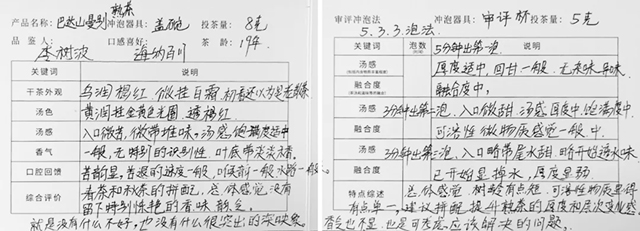 产品名称: 巴达山曼别熟茶 冲泡器具: 盖碗 投茶量: 8克
品鉴人: 李树波 口感喜好: 海纳百川 茶龄: 19年
关键词 说明
干茶外观 乌润褐红 微挂白霜,初看还以为是老
汤色 黄润挂金黄色光圈,透褐红.
汤感 入口微苦,微带堆味,汤感饱满度适中
香气 一般,无特别的识别性,叶底带淡淡
口腔回馈 苦韵显,苦退的速度一般,喉韵一般
综合评价 春茶和秋茶的拼配,总体感觉没有
留下特别惊艳的香味韵
就是没有什么不好,也没有什么很突出的深映象
审评冲泡法 冲泡器具: 审评杯 投茶量: 5克
5.3.3.泡法
关键词 泡数 说明
汤感 5分钟出第一泡
厚度适中,回甘一般,无杂味异味
融合度 融合度中,
汤感 3分钟出第二泡,入口微甜,汤感厚度中,饱满度中
融合度 可溶性微物质感觉一般中.
汤感 3分钟出第三泡,入口略带尾水甜,略开始透水味
融合度 已开始显掉水,厚度显弱
特点综述 总体感觉树龄有点短,可溶性物质显得
有点单一,建议拼配提升熟茶的厚度和层次变化感
也是可考虑应该解决的问题.